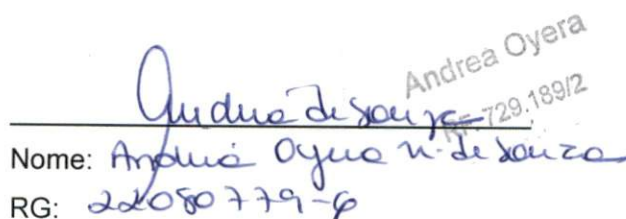 Andrea Oyera
RF: 729.189/2
Andrea de Souza
Nome: Andrea Oyera N. de Souza
RG: 22080779-6